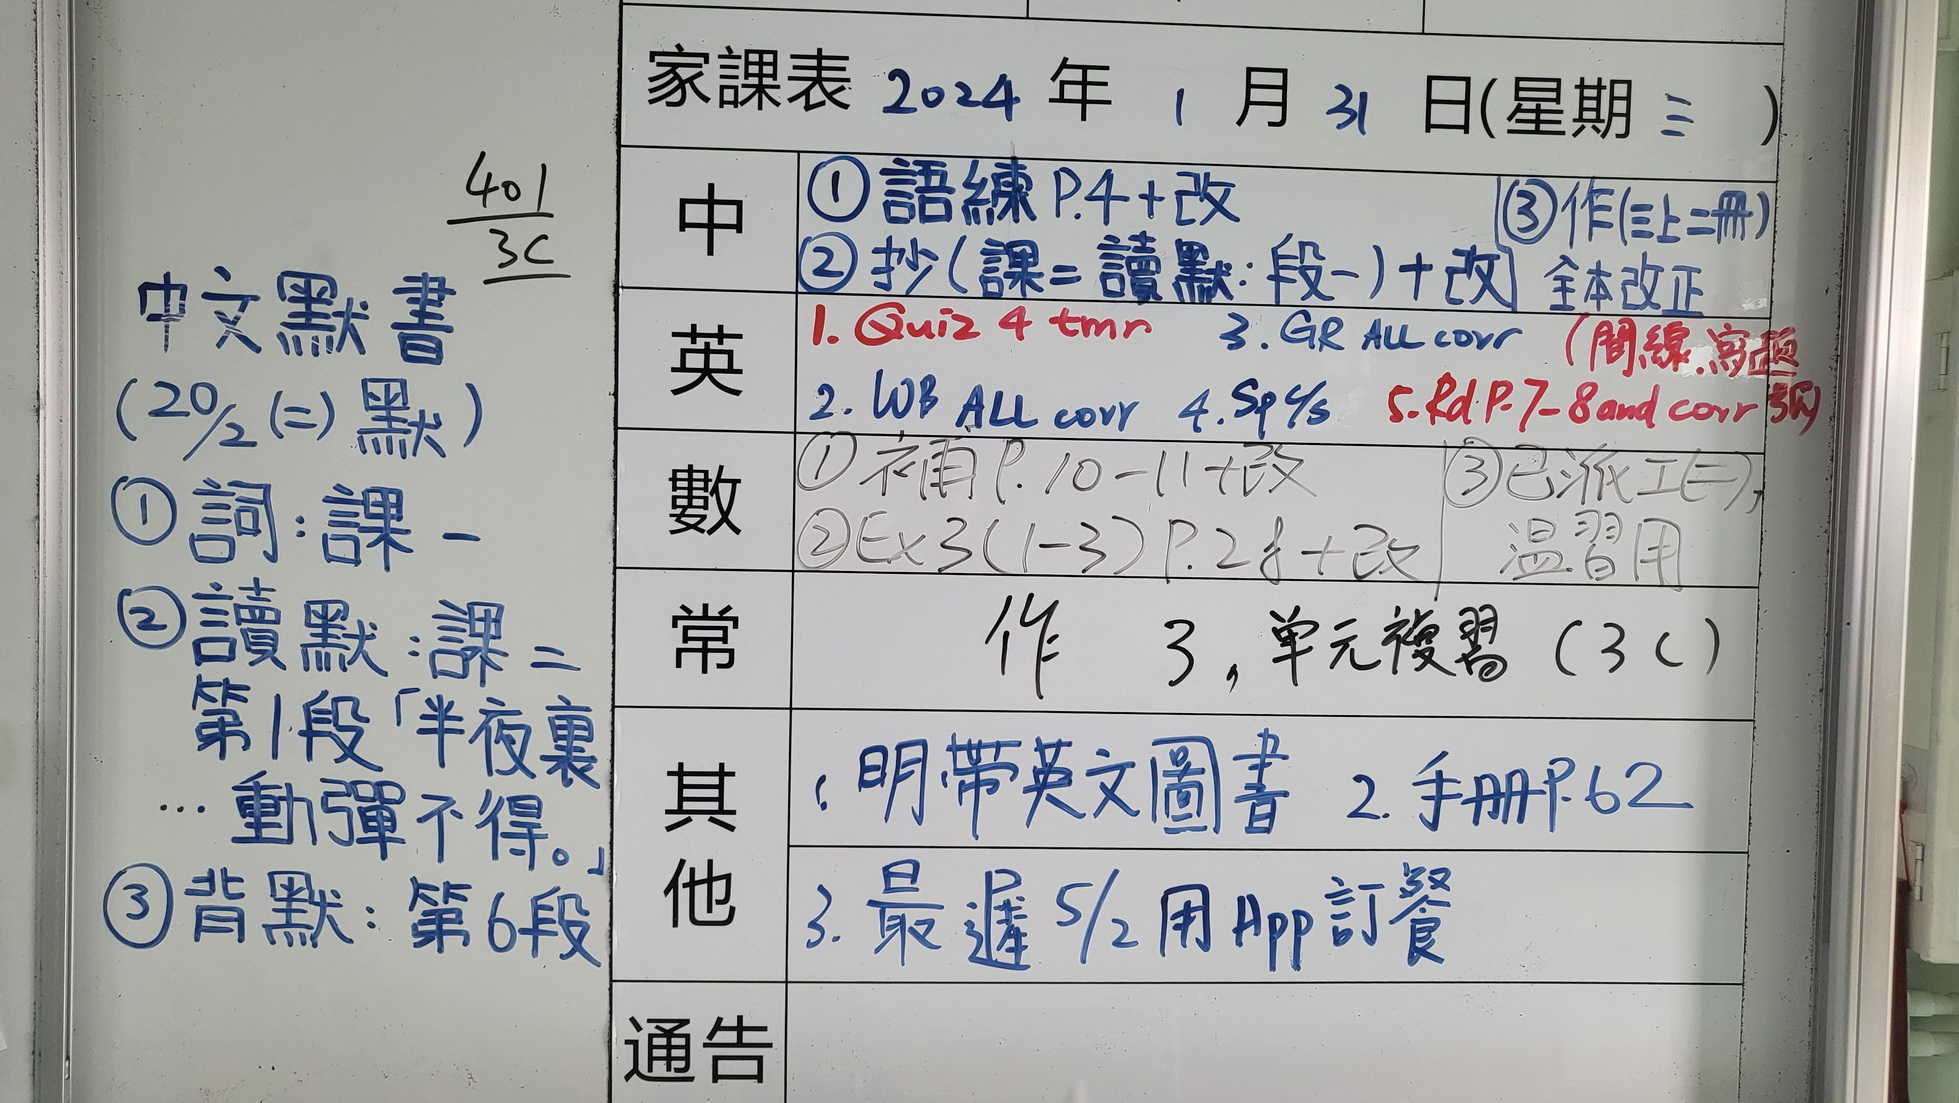 401
3C
中文默書
(20/2 (二) 默)
① 詞：課一
② 讀默：課二
第1段「半夜裏
…動彈不得。」
③ 背默：第6段
家課表 2024 年 1 月 31 日(星期 三 )
中
① 語練 P.4 + 改
② 抄(課二 讀默：段一) + 改
③ 作(三上二冊)
全本改正
英
1. Quiz 4 tmr 3. GR ALL corr (間線.寫題號)
2. WB ALL corr 4. Sp 4/s 5. Rd P.7-8 and corr
數
① 補 P.10-11 + 改
② Ex3(1-3) P.28 + 改
③ 已派工(二),
温習用
常
作 3, 单元複習 (3C)
其他
1. 明带英文圖書 2. 手册P.62
3. 最遲 5/2 用App訂餐
通告